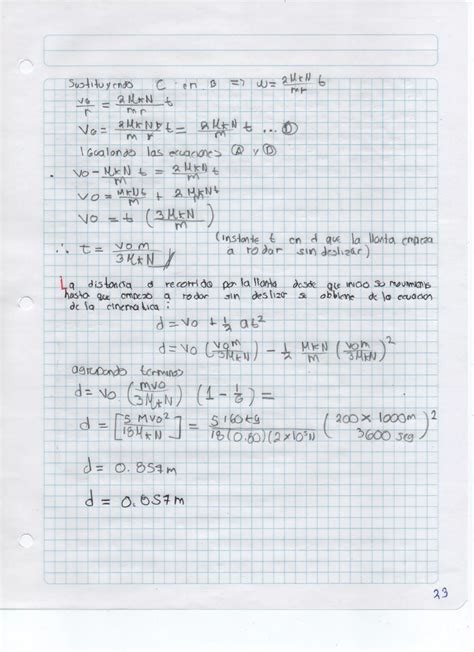 Sustituyendo C en B => ω = 2MkN/mr t
vG/r = 2MkN/mr t
VG = 2MkNr/m r t = 2MkN/m t ... D
Igualando las ecuaciones A y D
VO - MkN/m t = 2MkN/m t
VO = MkNt/m + 2MkNt/m
VO = t (3MkN/m)
∴ t = vom/3MkN (instante t en d que la llanta empeza a rodar sin deslizar)
La distancia d recorrida por la llanta desde que inicio su movimiento
hasta que empezo a rodar sin deslizar se obtiene de la ecuacion
de la cinematica:
d = vo + 1/2 at²
d = vo (vom/3MkN) - 1/2 MkN/m (vom/3MkN)²
agrupando terminos
d = vo (mvo/3MkN) (1 - 1/6) =
d = [5 mvo²/18MkN] = 5 160kg/18(0.80)(2x10⁵N) (200 x 1000m/3600 seg)²
d = 0.857m
d = 0.857m
29